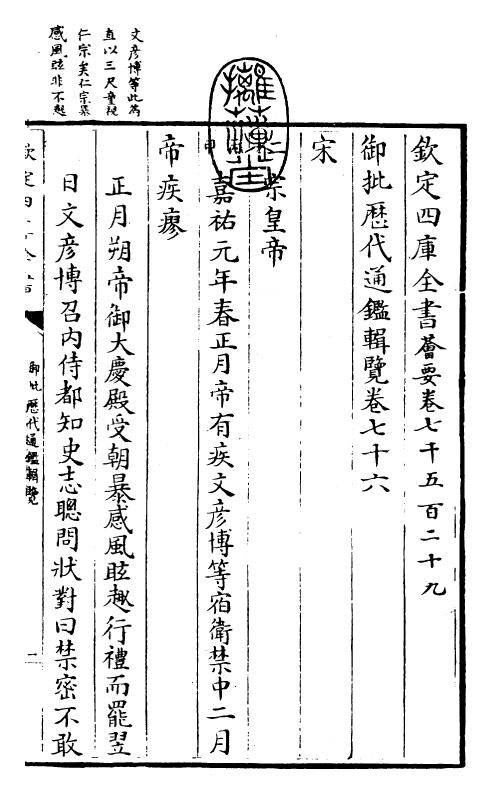 欽定四庫全書薈要卷七千五百二十九
御批歷代通鑑輯覽卷七十六
宋
仁宗皇帝
嘉祐元年春正月帝有疾文彥博等宿衛禁中二月
帝疾瘳
正月朔帝御大慶殿受朝暴感風眩趣行禮而罷翌
日文彥博召內侍都知史志聰問狀對曰禁密不敢
文彥博等此為
直以三尺童視
仁宗矣仁宗暴
感風眩非不起
欽定四庫全書
御批歷代通鑑輯覽
一